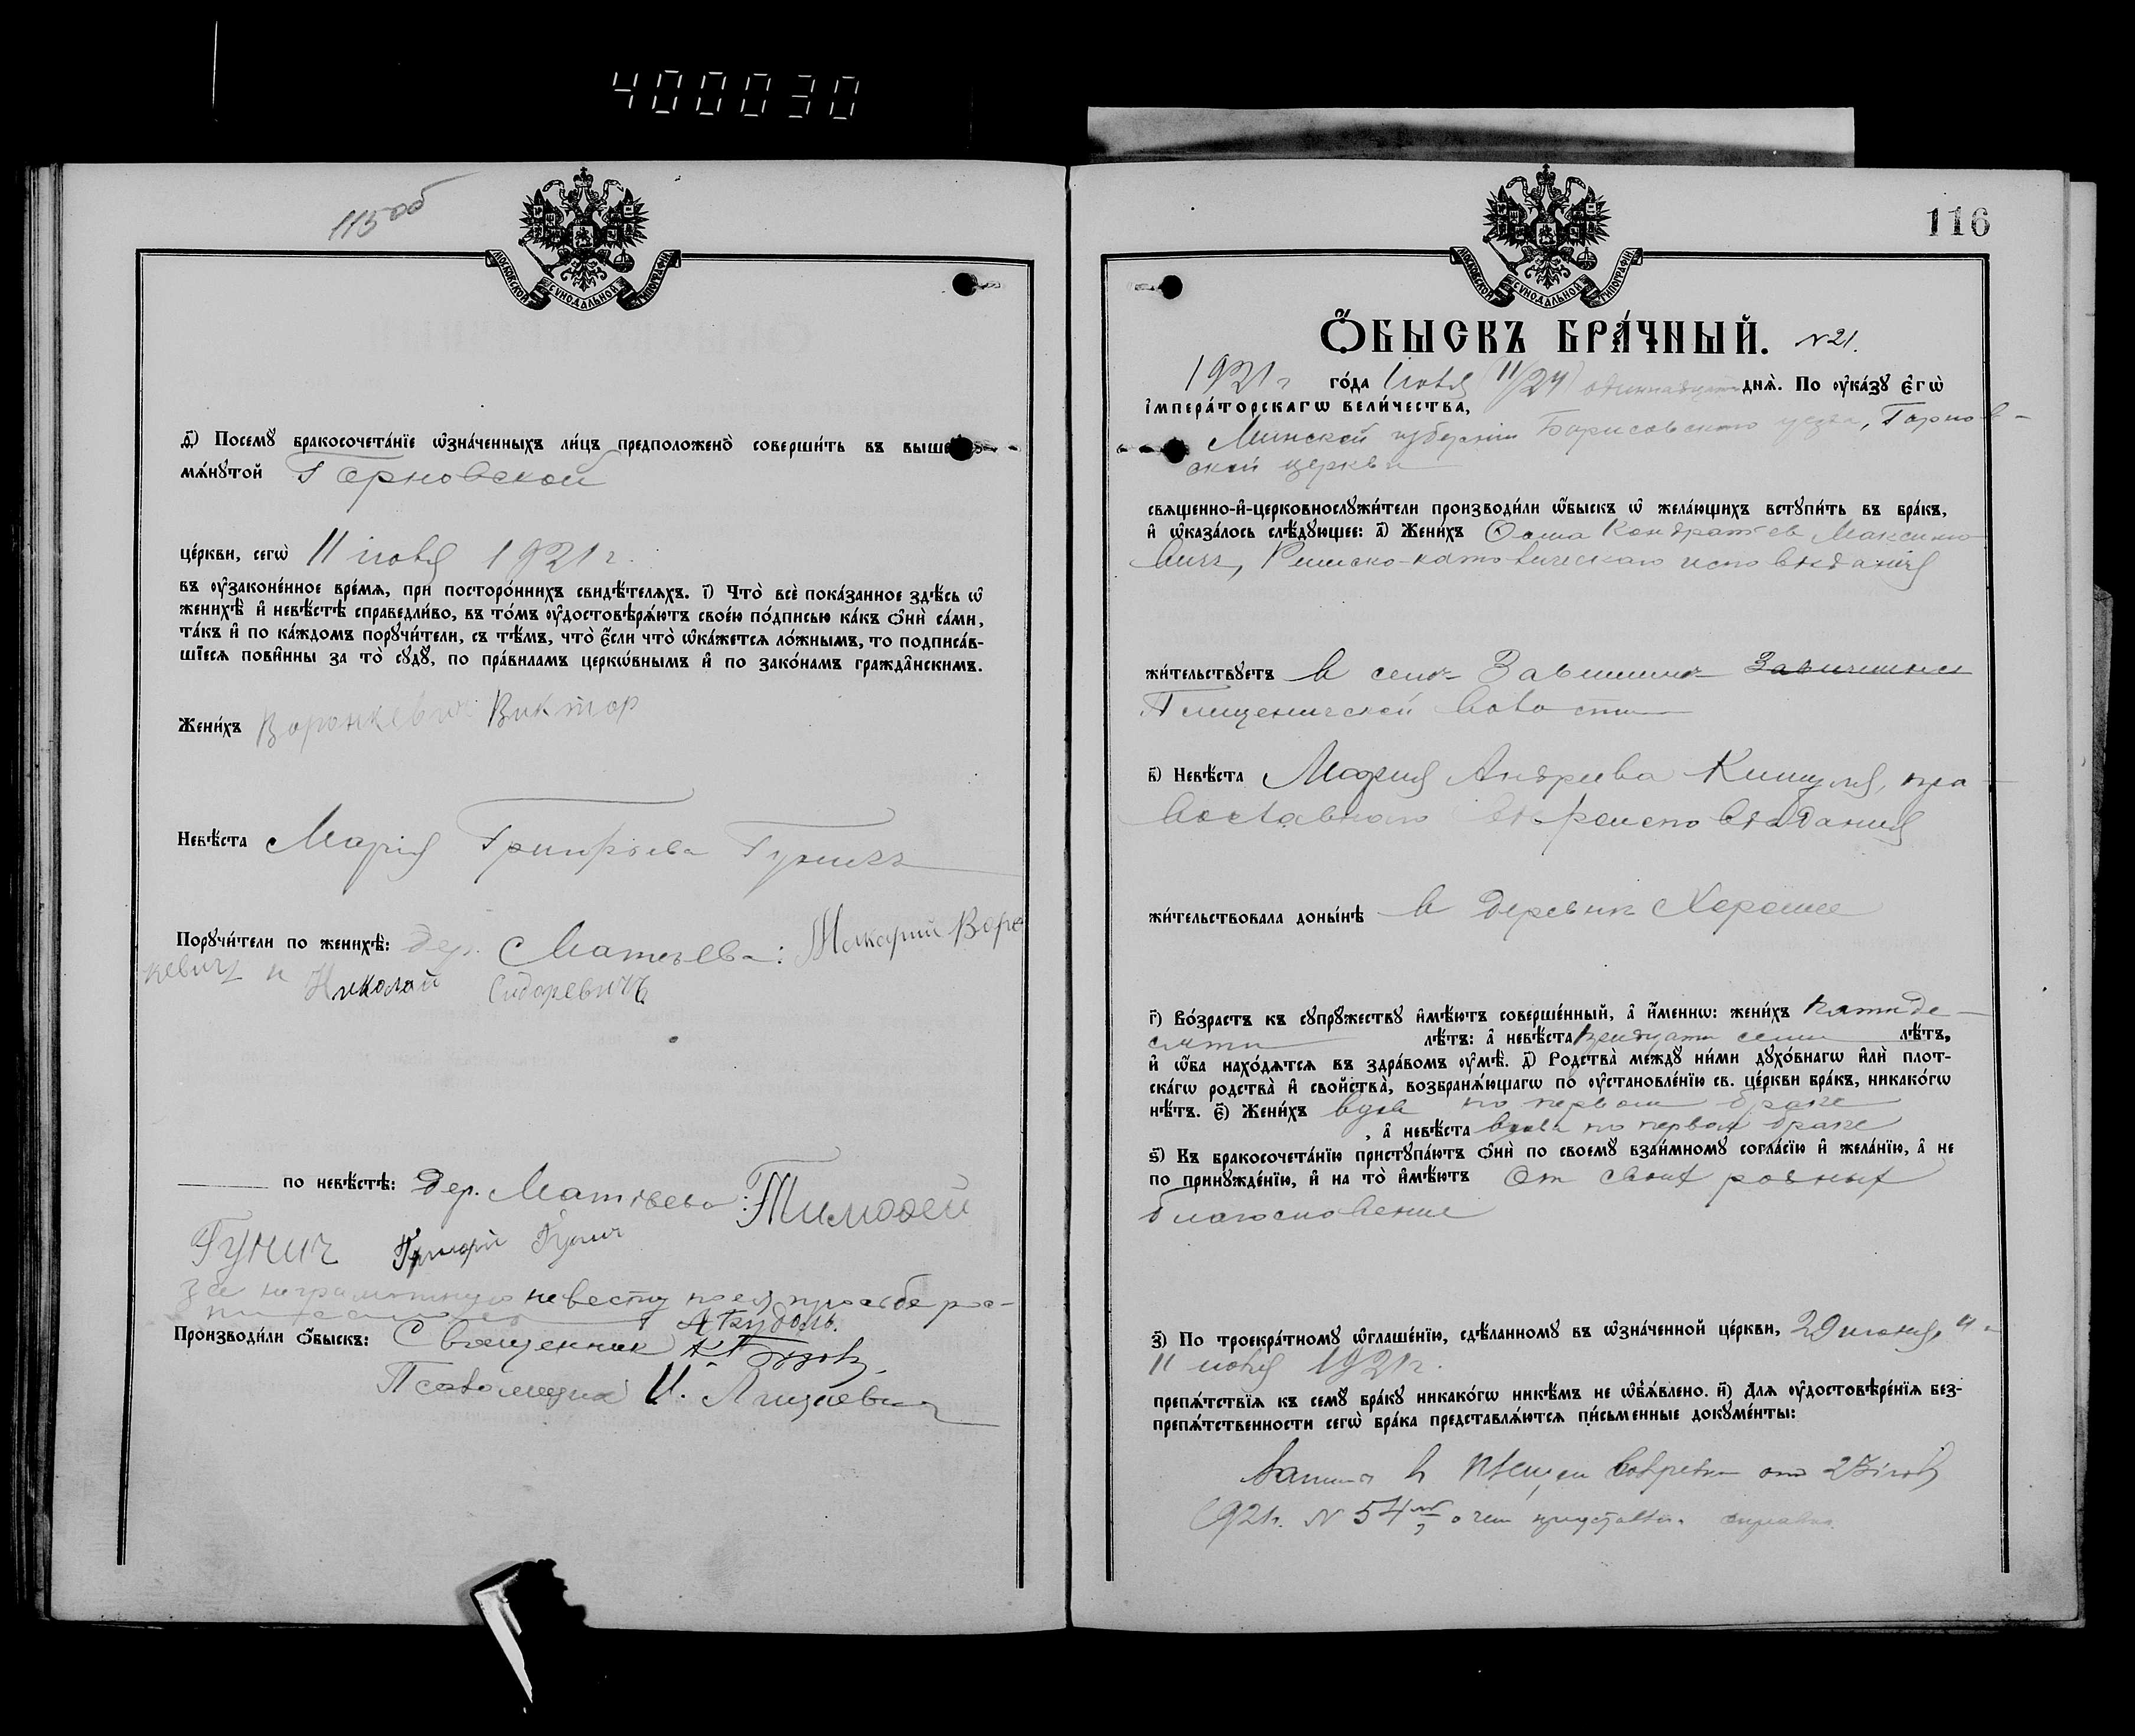 400030
115 об
МОСКОВСКОЙ СѴНОДАЛЬНОЙ ТИПОГРАФІИ
д҃і) Посемꙋ̀ бракосочета́нїе ѡ҆зна́ченныхъ ли́цъ предположено̀ соверши́ть въ вышепо-
мѧ́нꙋтой Терновской
це́ркви, сегѡ̀ 11 іюля 1921 г.
въ ᲂу҆зако́ненное вре́мѧ, при посторо́ннихъ свидѣ́телѧхъ. і҃) Что̀ всѐ пока́занное здѣ́сь ѡ҆
женихѣ̀ и҆ невѣ́стѣ справедли́во, въ то́мъ ᲂу҆достовѣрѧ́ютъ свое́ю по́дписью ка́къ ѻ҆нѝ са́ми,
та́къ и҆ по ка́ждомъ порꙋчи́тели, съ тѣ́мъ, что̀ є҆́сли что̀ ѡ҆ка́жетсѧ ло́жнымъ, то подписа́в-
шїесѧ пови́нны за то̀ сꙋдꙋ̀, по пра́виламъ церкѡ́внымъ и҆ по зако́намъ гражда́нскимъ.
Жени́хъ Воронкевич Виктор
Невѣ́ста Марія Григорьева Гуничъ
Порꙋчи́тели по женихѣ̀: дер. Матвѣева: Макарий Ворон
кевичъ и Николай Сидоревичъ
по невѣ́стѣ: дер. Матвѣева: Тимофей
Гунич Григорій Гунич
за неграмотную невесту по ея просьбе рос-
писался А Гридюль.
Производи́ли ѻ҆́быскъ: Священник
Псаломщик И.
116
МОСКОВСКОЙ СѴНОДАЛЬНОЙ ТИПОГРАФІИ
Ѻ҆́БЫСКЪ БРА́ЧНЫЙ. N 21.
1921 г го́да Іюля (11/24) одиннадцат днѧ̀. По ᲂу҆ка́зꙋ є҆гѡ̀
і҆мпера́торскагѡ вели́чества,
Минской губерніи Борисовского уезда, Тернов-
ской церкви
свѧщенно-и҆-церковнослꙋжи́тели производи́ли ѡ҆́быскъ ѡ҆ жела́ющихъ встꙋпи́ть въ бра́къ,
и҆ ѡ҆каза́лось слѣ́дꙋющее: а҃) Жени́хъ Фома Кондратьев Максимо
вичъ, Римско-католическаго исповѣданія
жи́тельствꙋетъ в селѣ
волости
в҃) Невѣ́ста Мария Андреева Кишуля, пра-
вославного вероисповѣдания
жи́тельствовала донынѣ в деревне Хорошее
г҃) Во́зрастъ къ сꙋпрꙋ́жествꙋ и҆мѣ́ютъ соверше́нный, а҆ и҆́меннѡ: жени́хъ пятиде-
сяти лѣ́тъ: а҆ невѣ́ста тридцати семи лѣ́тъ,
и҆ ѡ҆́ба нахо́дѧтсѧ въ здра́вомъ ᲂу҆мѣ̀. д҃) Родства̀ междꙋ̀ ни́ми дꙋхо́внагѡ и҆лѝ плот-
ска́гѡ родства̀ и҆ сво́йства, возбранѧ́ющагѡ по ᲂу҆становле́нїю св. це́ркви бра́къ, никако́гѡ
нѣ́тъ. є҃) Жени́хъ вдов по первом браке
, а҆ невѣ́ста вдова по первом браке
ѕ҃) Къ бракосочета́нїю пристꙋпа́ютъ ѻ҆нѝ по своемꙋ̀ взаи́мномꙋ согла́сїю и҆ жела́нїю, а҆ не
по принꙋжде́нїю, и҆ на то̀ и҆мѣ́ютъ От своих родных
благословение
з҃) По троекра́тномꙋ ѡ҆глаше́нїю, сдѣ́ланномꙋ въ ѡ҆зна́ченной це́ркви, 29 июня, 4 и
11 июля 1921 г.
препѧ́тствїѧ къ семꙋ̀ бра́кꙋ никако́гѡ никѣ́мъ не ѡ҆б̾ѧ́влено. и҃) Длѧ ᲂу҆достовѣре́нїѧ без-
препѧ́тственности сегѡ̀ бра́ка представлѧ́ютсѧ пи́сьменные докꙋме́нты:
Запись в от 23 июля
1921 г. N 54 о чем представлен справка.